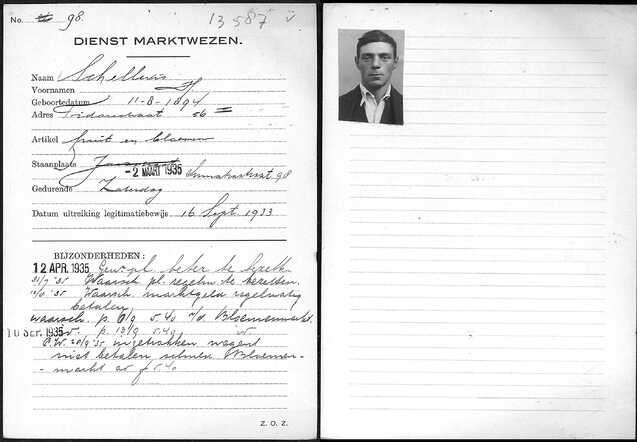 No. 98.
13587 v
DIENST MARKTWEZEN.
Naam Schellens
Voornamen H
Geboortedatum 11-8-1894
Adres 56
Artikel fruit en bloemen
Staanplaats
-2 MAART 1935 Sumatrastraat 98
Gedurende Zaterdag
Datum uitreiking legitimatiebewijs 16 Sept. 1933
BIJZONDERHEDEN:
12 APR. 1935 beter te
Waarsch. pl. regelm. te bezetten.
Waarsch. marktgeld regelmatig
betalen
waarsch. p. 6/9 5.40 Bloemenmarkt.
10 SEP. 1935 p. 13/9 5.40
B.W. 20/9 '35 ingetrokken wegens
niet betalen Bloemen-
-markt ad f 5.40
Z. O. Z.